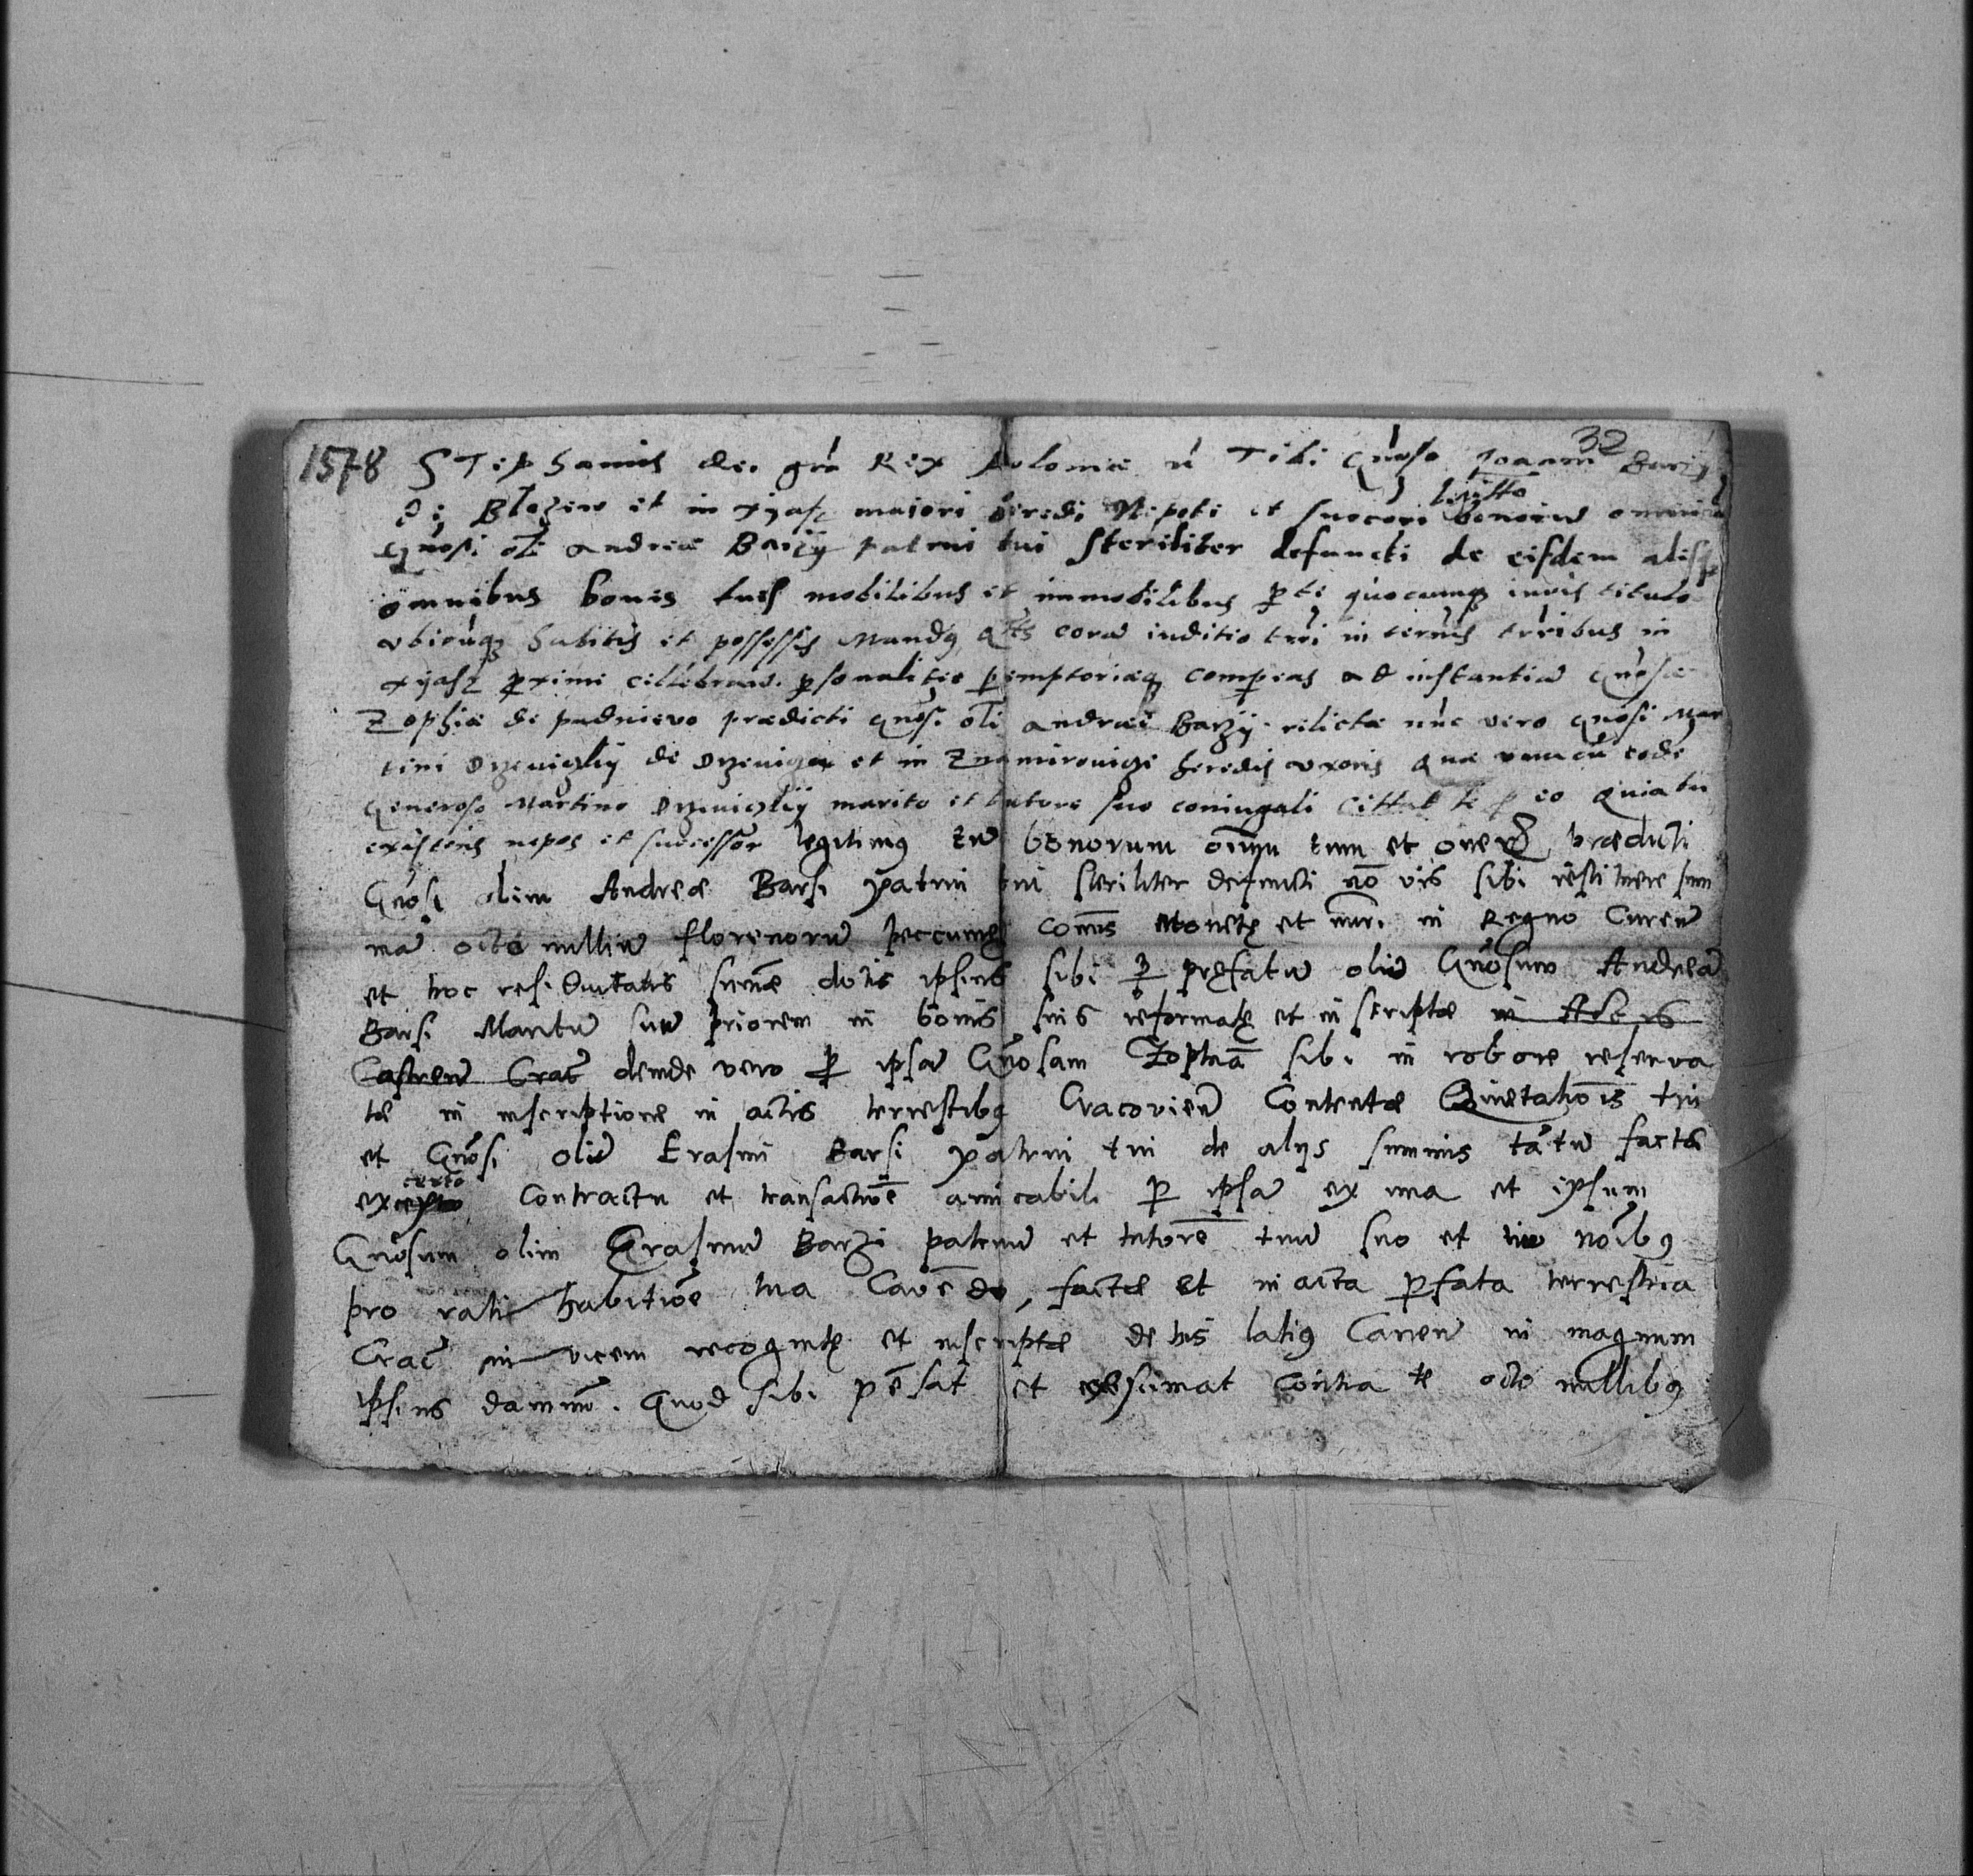 1578 Stephanus dei gra Rex Poloniæ Tibi Gnoso Joanni Barzy 32
de Błozew et in xyasz maiori heredi Nepoti et succori legitto bonorum omnium
Gnosi oli andreæ Barzy patrui tui steriliter defuncti de eisdem alisq
omnibus bonis tuis mobilibus et immobilibus per te quocumq iuris titulo
vbicuq habitis et possessis Mandq coram iuditio trri in termis trribus in
xyasz proxime cellebrand. personaliter peremptorieq compeas ad instantia Gnosæ
Zophiæ de padniewo prædicti Gnosi oli andreæ Barzy relictæ nuc vero Gnosi Mar
tini de et in heredis vxoris Quæ vnacu eode
Generoso Martino marito et tutore suo coniugali cittat te p eo Quia tu
existens nepos et successor legitimus bonorum oium tum et oneru prædicti
Gnosi olim Andreæ Barsi patrui tui steriliter defuncti no vis sibi restituere sum
ma octo milliu florenoru peccuniæ cois monetæ et nuri. in Regno Curen
et hoc residuitatis sumæ dotis ipsius sibi per præfatu oliu Gnosum Andrea
Barsi Maritu suu priorem in bonis suis reformatæ et inscriptæ in Actis
Castren Crac deinde vero per ipsa Gnosam Zophia sibi in robore reserva
tæ in inscriptione in actis terrestibq Cracovien Contentæ Quietationis tui
et Gnosi oliu Erasmi Barsi patrui tui de alys summis tatu factæ
ex certo contractu et transactioe amicabili per ipsa ex una et ipsum
Gnosum olim Erasmu Barzi patruu et tutore tuu suo et tuo noibq
pro rati habitioe tua Cavedo, factæ et in acta pfata terrestria
Crac in vicem recognitæ et inscriptæ de his latiq Canen in magnum
ipsius damnu. Quod sibi pesat et exestimat contra te octo millibq